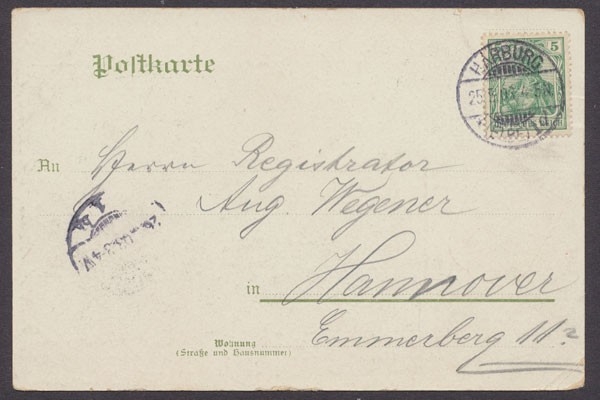 Postkarte
5
HARBURG
An Herrn Registrator
Aug. Wegener
in Hannover
Wohnung
(Straße und Hausnummer)
Emmerberg 11